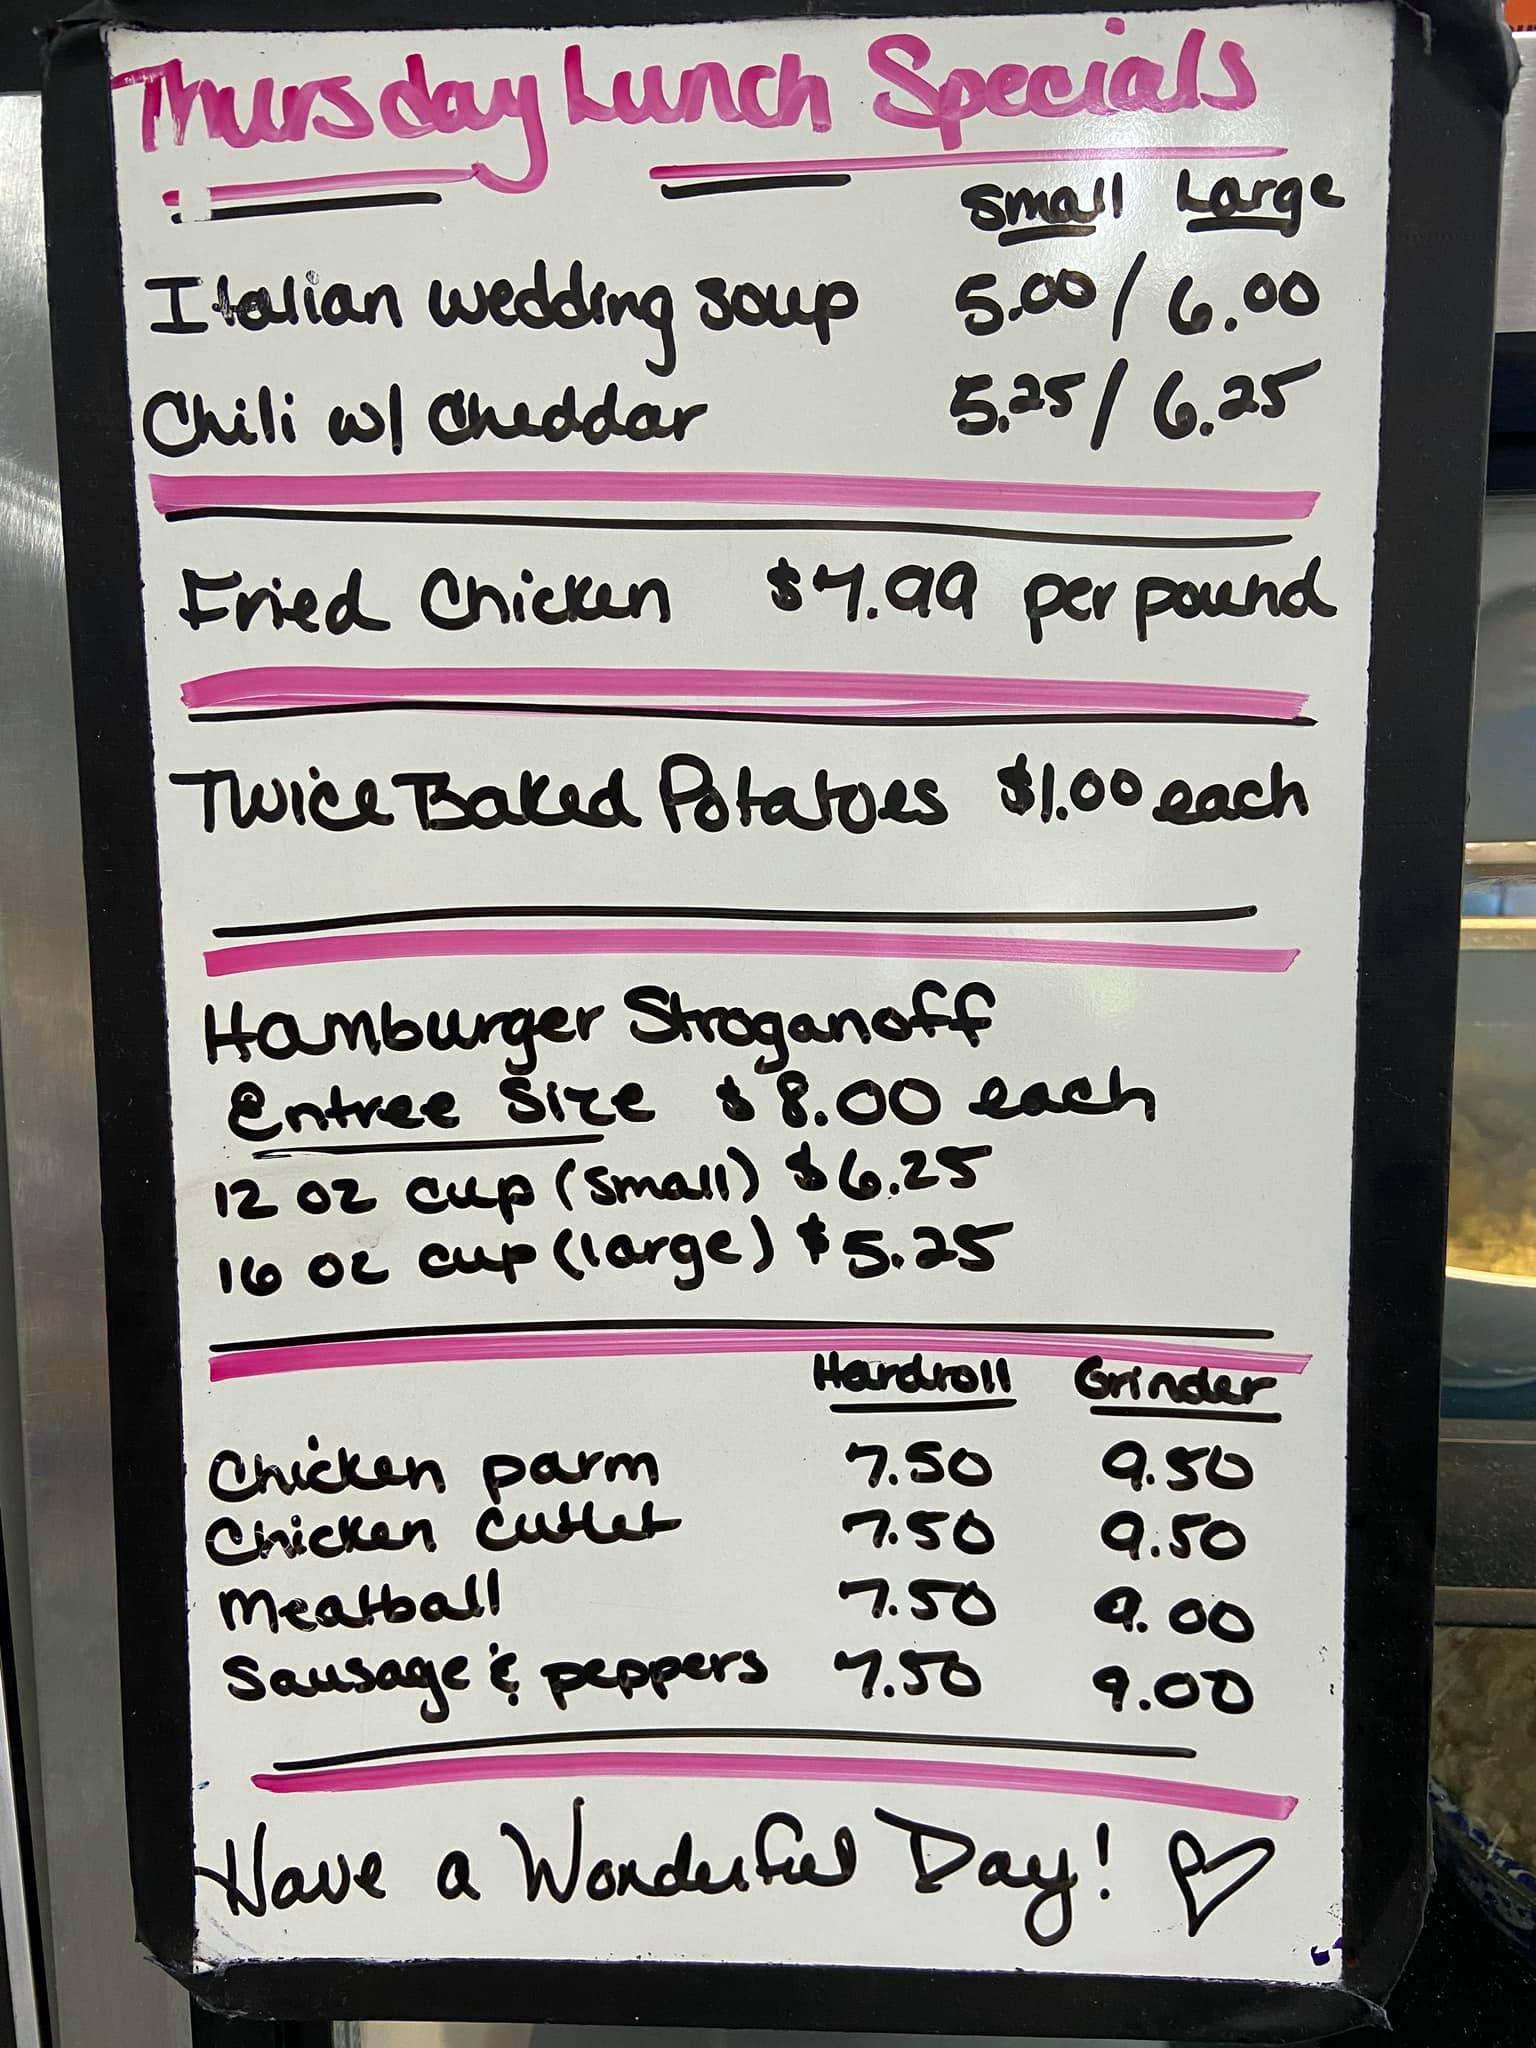 Thursday Lunch Specials
Small Large
Italian wedding soup 5.00 / 6.00
Chili w/ Cheddar 5.25 / 6.25
Fried Chicken $7.99 per pound
Twice Baked Potatoes $1.00 each
Hamburger Stroganoff
Entree Size $8.00 each
12 oz cup (small) $6.25
16 oz cup (large) $5.25
Hardroll Grinder
Chicken parm 7.50 9.50
Chicken cutlet 7.50 9.50
Meatball 7.50 9.00
Sausage & peppers 7.50 9.00
Have a Wonderful Day!